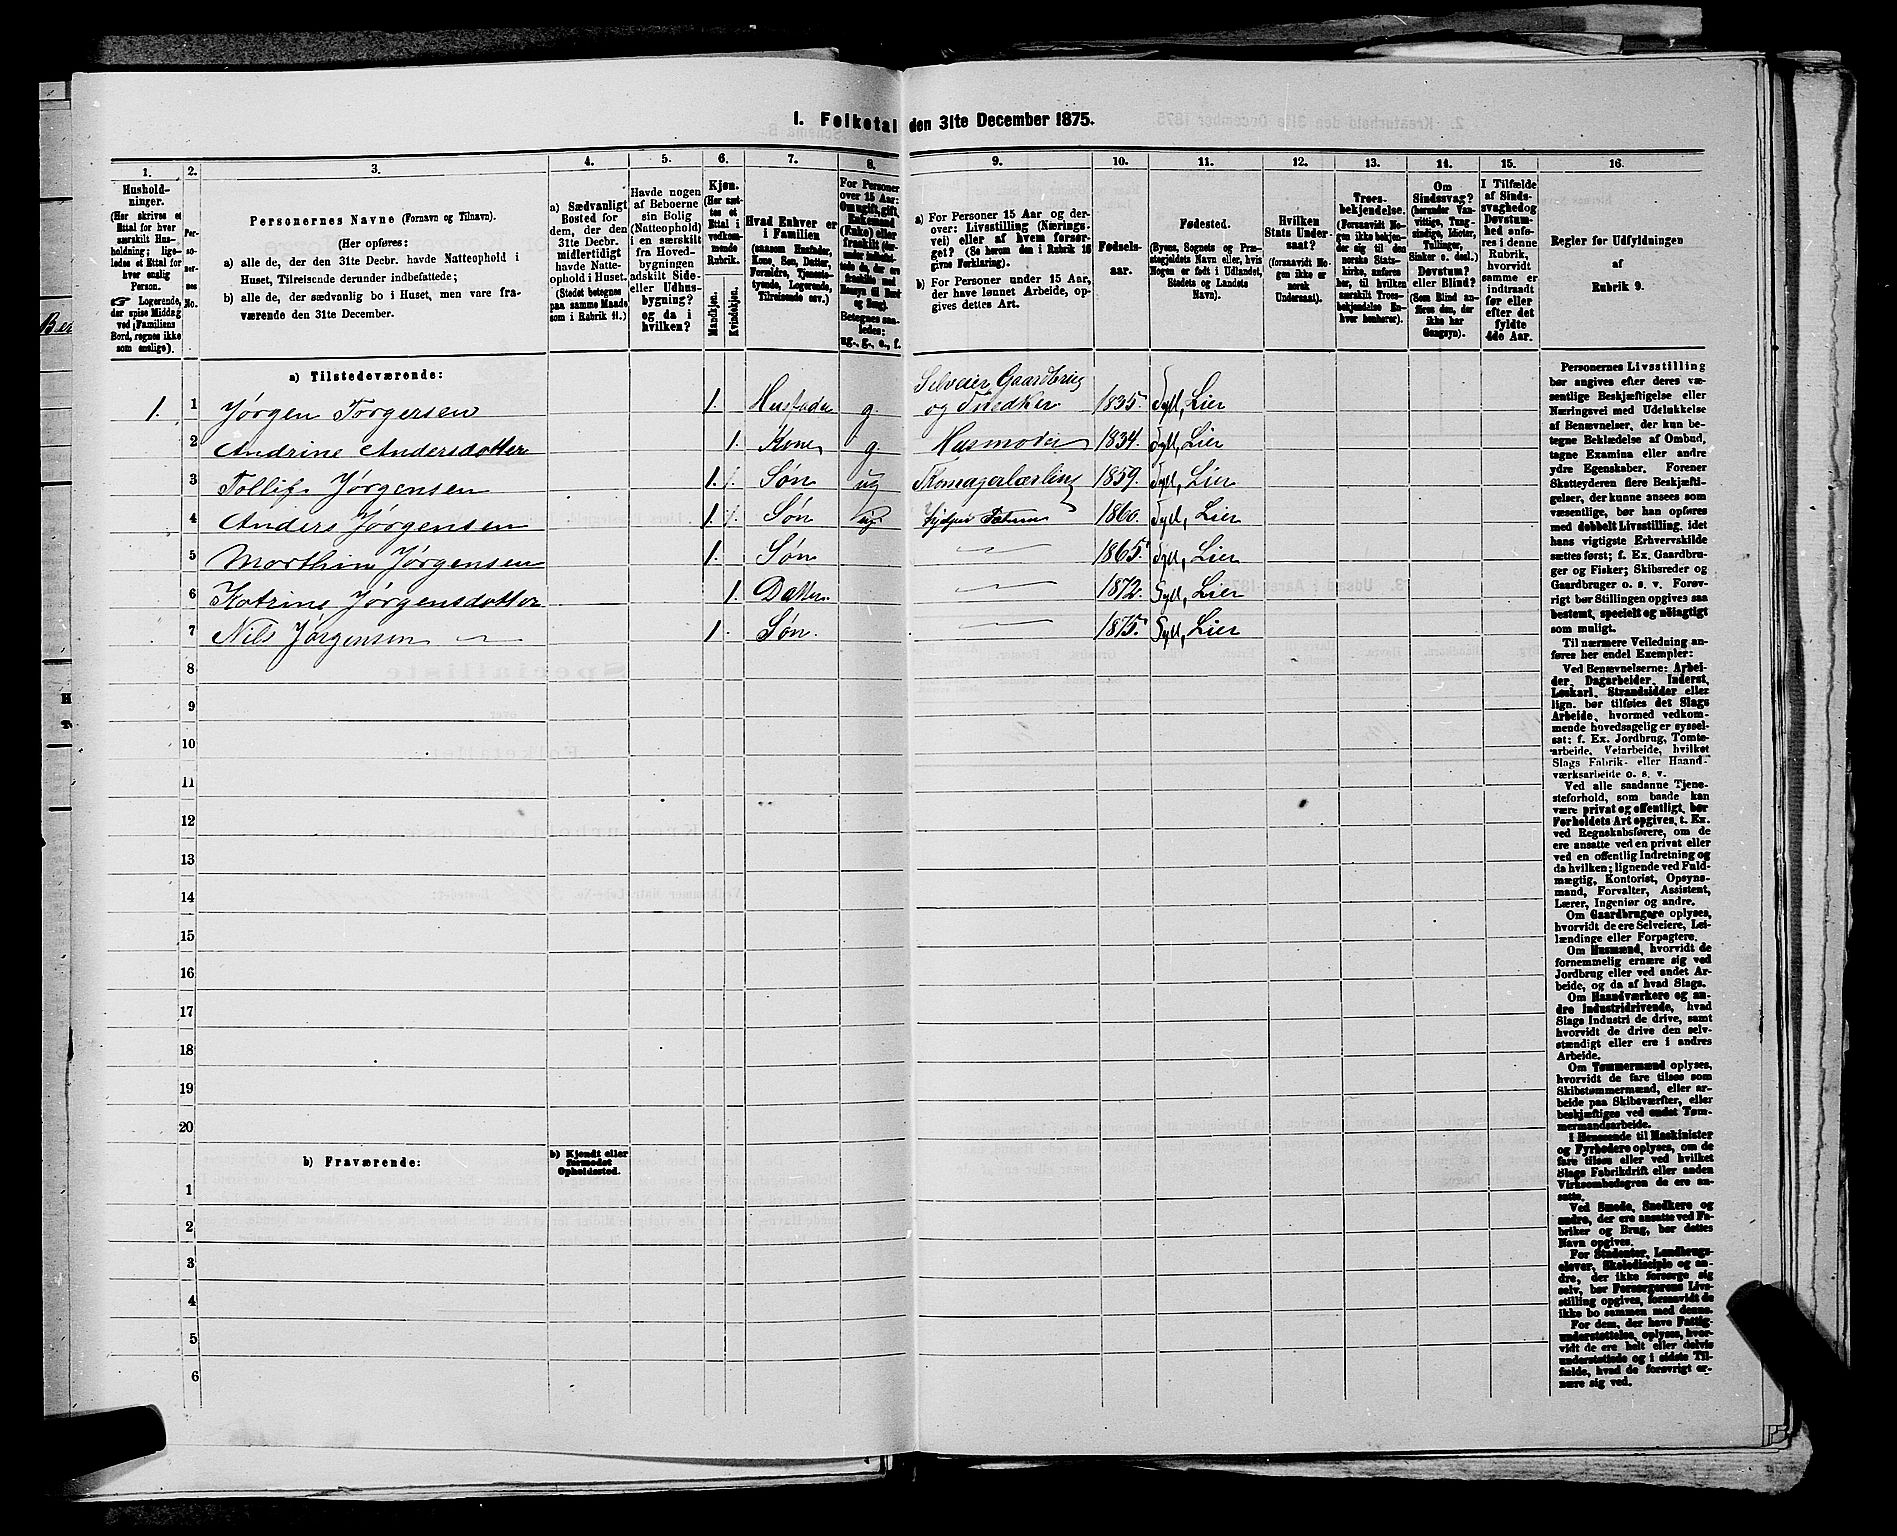 I. Folketal den 31te December 1875.
1. 2. 3. 4. 5. 6. 7. 8. 9. 10. 11. 12. 13. 14. 15. 16.
Hushold-
ninger.
(Her skrives et
Ettal for hver
særskilt Hus-
holdning; lige-
ledes et Ettal for
hver enslig
Person.
☞ Logerende,
der spise Middag
ved Familiens
Bord, regnes ikke
som enslige).
Per-
so-
ner-
nes
No.
Personernes Navne (Fornavn og Tilnavn).
(Her opføres:
a) alle de, der den 31te Decbr. havde Natteophold i
Huset, Tilreisende derunder indbefattede;
b) alle de, der sædvanlig bo i Huset, men vare fra-
værende den 31te December.
a) Sædvanligt
Bosted for
dem, der den
31te Decbr.
midlertidigt
havde Natte-
ophold i Huset.
(Stedet betegnes
paa samme Maade
som i Rubrik 11.)
Havde nogen
af Beboerne
sin Bolig
(Natteophold)
i en særskilt
fra Hoved-
bygningen
adskilt Side-
eller Udhus-
bygning?
og da i
hvilken?
Kjøn.
(Her sæt-
tes et
Ettal i
vedkom-
mende
Rubrik.
Mandkjøn.
Kvindekjøn.
Hvad Enhver er
i Familien
(saasom Husfader,
Kone, Søn, Datter,
Forældre, Tjeneste-
tyende, Logerende,
Tilreisende osv.)
For Personer
over 15 Aar:
Om ugift, gift,
Enkemand
(Enke) eller
fraskilt
Betegnes saa-
ledes:
ug., g., e., f.
a) For Personer 15 Aar og der-
over: Livsstilling (Nærings-
vei) eller af hvem forsør-
get? (Se herom den i Rubrik 16
givne Forklaring).
b) For Personer under 15 Aar,
der have lønnet Arbeide, op-
gives dettes Art.
Fødsels-
aar.
Fødested.
(Byens, Sognets og Præ-
stegjeldets Navn eller, hvis
Nogen er født i Udlandet,
Stedets og Landets
Navn).
Hvilken
Stats Under-
saat?
(foraavidt No-
gen ikke er
norsk
Undersaat).
Troes-
bekjendelse.
(Forsaavidt No-
gen ikke bekjen-
der sig til den
norske Stats-
kirke, anføres
her, til hvilken
særskilt Troes-
bekjendelse En-
hver henhører).
Om
Sindssvag?
(herunder Van-
vittige, Tung-
sindige, Idioter,
Tullinger,
Sinker o. desl.)
Døvstum?
eller Blind?
(Som Blind an-
føres den, der
ikke har
Gangsyn).
I Tilfælde
af Sinds-
svaghed og
Døvstum-
hed anfø-
res i denne
Rubrik,
hvorvidt
samme er
indtraadt
før eller
efter det
fyldte
4de Aar.
Regler for Udfyldningen
af
Rubrik 9.
a) Tilstedeværende:
1. 1 Jørgen Torgersen 1. Husfader g. Selveier Gaardbrug og Snedker 1835. Syll, Lier
2 Andrine Andersdotter 1. Kone g. Husmoder 1834. Syll, Lier
3 Tollif Jørgensen 1. Søn ug 1859. Syll, Lier
4 Anders Jørgensen 1. Søn ug. 1860. Syll, Lier
5 Morthin Jørgensen 1. Søn 1865. Syll, Lier
6 Katrine Jørgensdotter 1. Datter 1872. Syll, Lier
7 Nils Jørgensen 1. Søn. 1875. Syll, Lier
8
9
10
11
12
13
14
15
16
17
18
19
20
b) Fraværende:
b) Kjendt eller
formodet
Opholdssted.
1
2
3
4
5
6
Personernes Livsstilling
bør angives efter deres væ-
sentlige Beskjæftigelse eller
Næringsvei med Udelukkelse
af Benævnelser, der kun be-
tegne Beklædelse af Ombud,
tagne Examina eller andre
ydre Egenskaber. Forener
Skatteyderen flere Beskjæfti-
gelser, der kunne ansees som
væsentlige, bør han opføres
med dobbelt Livsstilling, idet
hans vigtigste Erhvervskilde
sættes først; f. Ex. Gaardbru-
ger og Fisker; Skibsreder og
Gaardbruger o. s. v. Forøv-
rigt bør Stillingen opgives saa
bestemt, specielt og nøiagtigt
som muligt.
Til nærmere Veiledning an-
føres her endel Exempler:
Ved Benævnelserne: Arbei-
der, Dagarbeider, Inderst,
Løskarl, Strandsidder eller
lign. bør tilføies det Slags
Arbeide, hvormed vedkom-
mende hovedsagelig er syssel-
sat; f. Ex. Jordbrug, Tomte-
arbeide, Veiarbeide, hvilket
Slags Fabrik- eller Haand-
værksarbeide o. s. v.
Ved alle saadanne Tjene-
steforhold, som baade kan
være privat og offentligt, bør
Forholdets Art opgives, t. Ex.
ved Regnskabsførere, om de
ere ansatte ved en privat eller
ved en offentlig Indretning og
da hvilken; lignende ved Fuld-
mægtig, Kontorist, Opsyns-
mand, Forvalter, Assistent,
Lærer, Ingeniør og andre.
Om Gaardbrugere oplyses,
hvorvidt de ere Selveiere, Lei-
lændinge eller Forpagtere.
Om Husmænd, hvorvidt de
fornemmelig ernære sig ved
Jordbrug eller ved andet Ar-
beide, og da af hvad Slags.
Om Haandværkere og an-
dre Industridrivende, hvad
Slags Industri de drive, samt
hvorvidt de drive den selv-
stændigt eller ere i andres
Arbeide.
Om Tømmermænd oplyses,
hvorvidt de fare tilsøs som
Skibstømmermænd, eller ar-
beide paa Skibsværfter, eller
beskjæftiges ved andet Tøm-
mermandsarbeide.
I Henseende til Maskinister
og Fyrbødere oplyses, om de
fare tilsøs eller ved hvilket
Slags Fabrikdrift eller anden
Virksomhedsgren de ere an-
satte.
Ved Smede, Snedkere og
andre, der ere ansatte ved Fa-
briker og Brug, bør dettes
Navn opgives.
For Studenter, Landbrugs-
elever, Skoledisciple og an-
dre, der ikke forsørge sig
selv, bør Forsørgerens Livs-
stilling opgives, forsaavidt de
ikke bo sammen med denne.
For dem, der have Fattig-
understøttelse, oplyses, hvor-
vidt de ere helt eller delvis
understøttede og i sidste Til-
fælde, hvad de forøvrigt er-
nære sig ved.